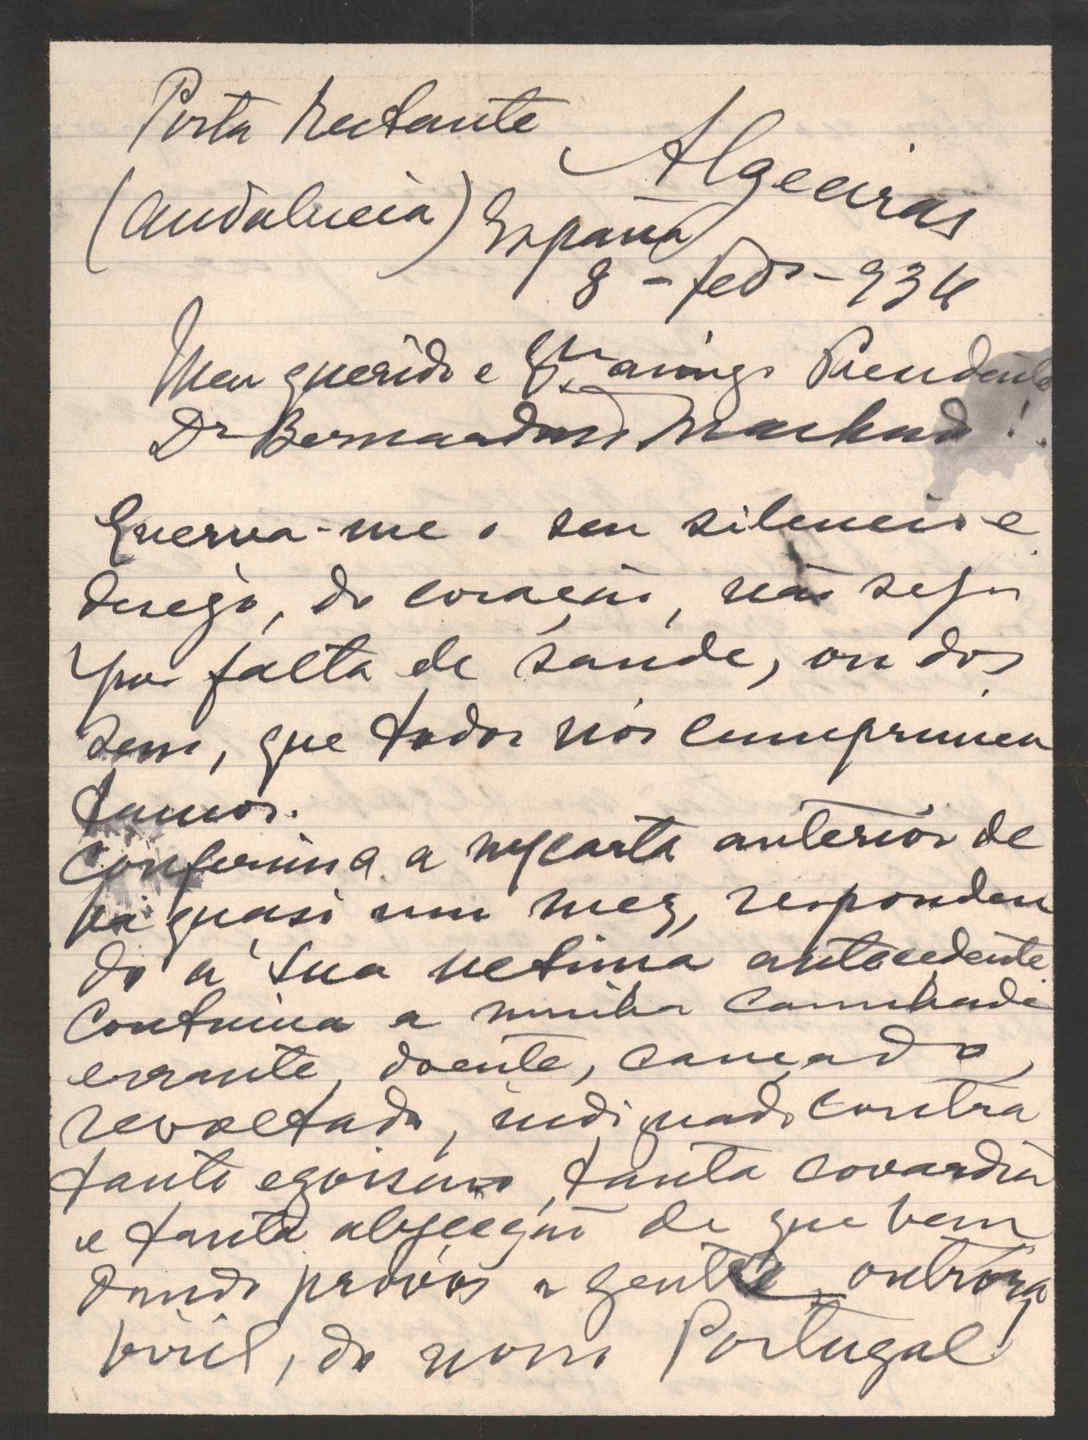 Posta Restante
Algeciras
(Andalucia) España
8 - fedo - 934
Meu querido e amigo Presidente
Dr Bernardino Machado!
Enerva-me o seu silencio e
desejo, do coração, não seja
por falta de saude, ou dos
sem, que todos nós cumprimen
tamos.
Confirma a m/carta anterior de
há quasi um mez, responden
do á sua ultima antecedente
Continua a minha caminhada
errante, doente, cançado,
revoltado, indignado contra
tanto egoismo, tanta covardia
e tanta abjecção de que vem
dando provas a gente, outróra
viril, do nosso Portugal!